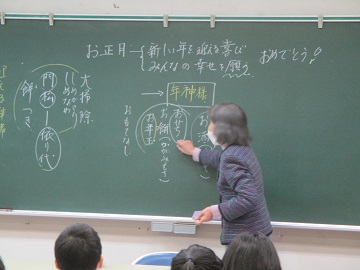 お正月
新しい年を迎える喜び
みんなの幸せを願う
おめでとう!
年神様
おせち
お餅(かがみもち)
お年玉
おもてなし
大掃除
しめかざり
しめなわ
門松
依り代
餅つき